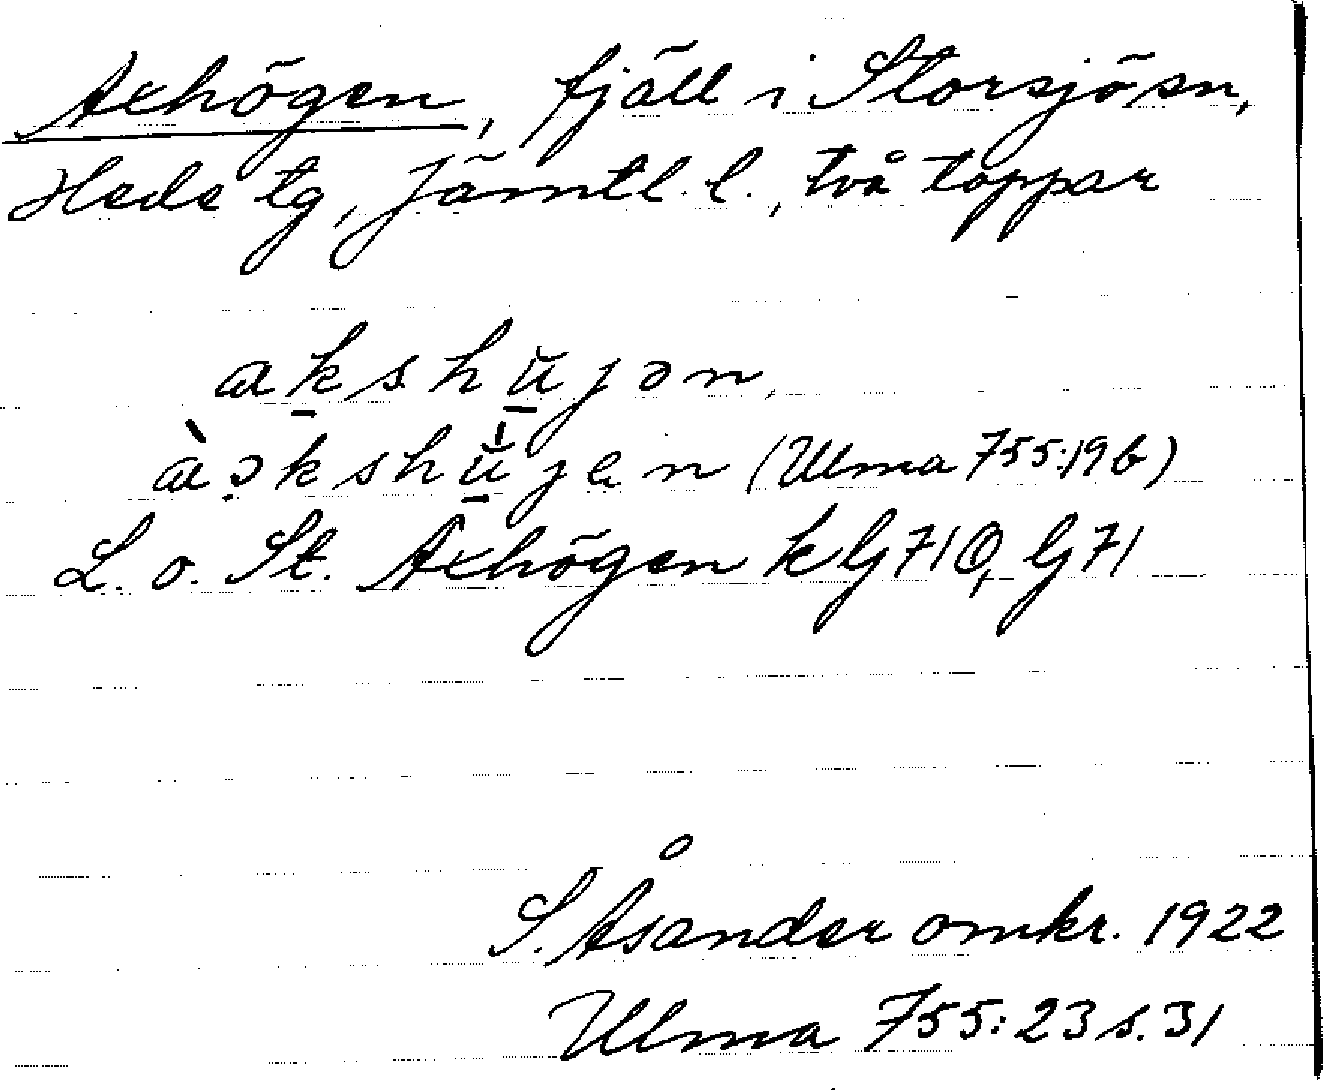 Axhögen, fjäll i Storsjö sn,
Hede tg, Jämtl. l., två toppar
akshu̲jən,
àəkshu̲jen (Ulma 755:19b)
L. o. St. Axhögen k G710, G71
S. Åsander omkr. 1922
Ulma 755:23 s. 31